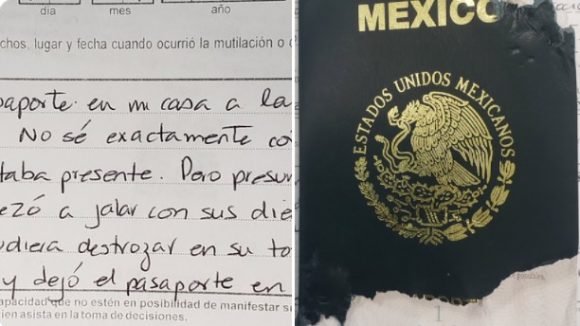 día mes año
chos, lugar y fecha cuando ocurrió la mutilación o
saporte en mi casa a la
No sé exactamente
taba presente. Pero
ezó a jalar con sus
udiera destrozar en su
y dejó el pasaporte en
apacidad que no estén en posibilidad de manifestar
ien asista en la toma de decisiones.
MÉXICO
ESTADOS UNIDOS MEXICANOS